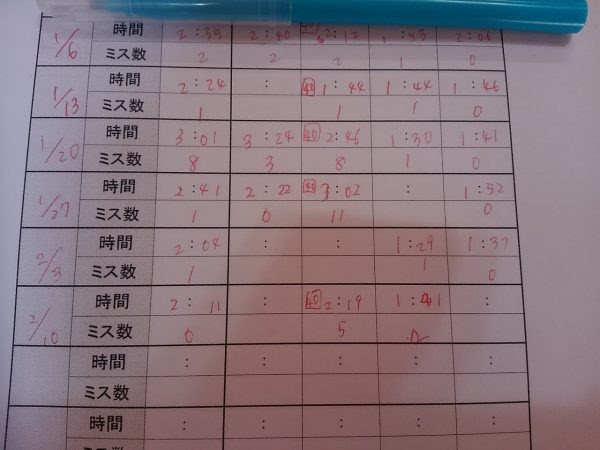 1/6 時間 2:35 2:40 40 2:12 1:53 2:06
ミス数 2 2 2 1 0
1/13 時間 2:24 : 40 1:44 1:44 1:46
ミス数 1 1 1 0
1/20 時間 3:01 3:24 40 2:46 1:30 1:41
ミス数 8 3 8 1 0
1/27 時間 2:41 2:22 40 3:02 : 1:52
ミス数 1 0 11 0
2/3 時間 2:04 : : 1:29 1:37
ミス数 1 1 0
2/10 時間 2:11 : 40 2:19 1:41 :
ミス数 0 5 2
時間 : : : : :
ミス数
時間 : : : : :